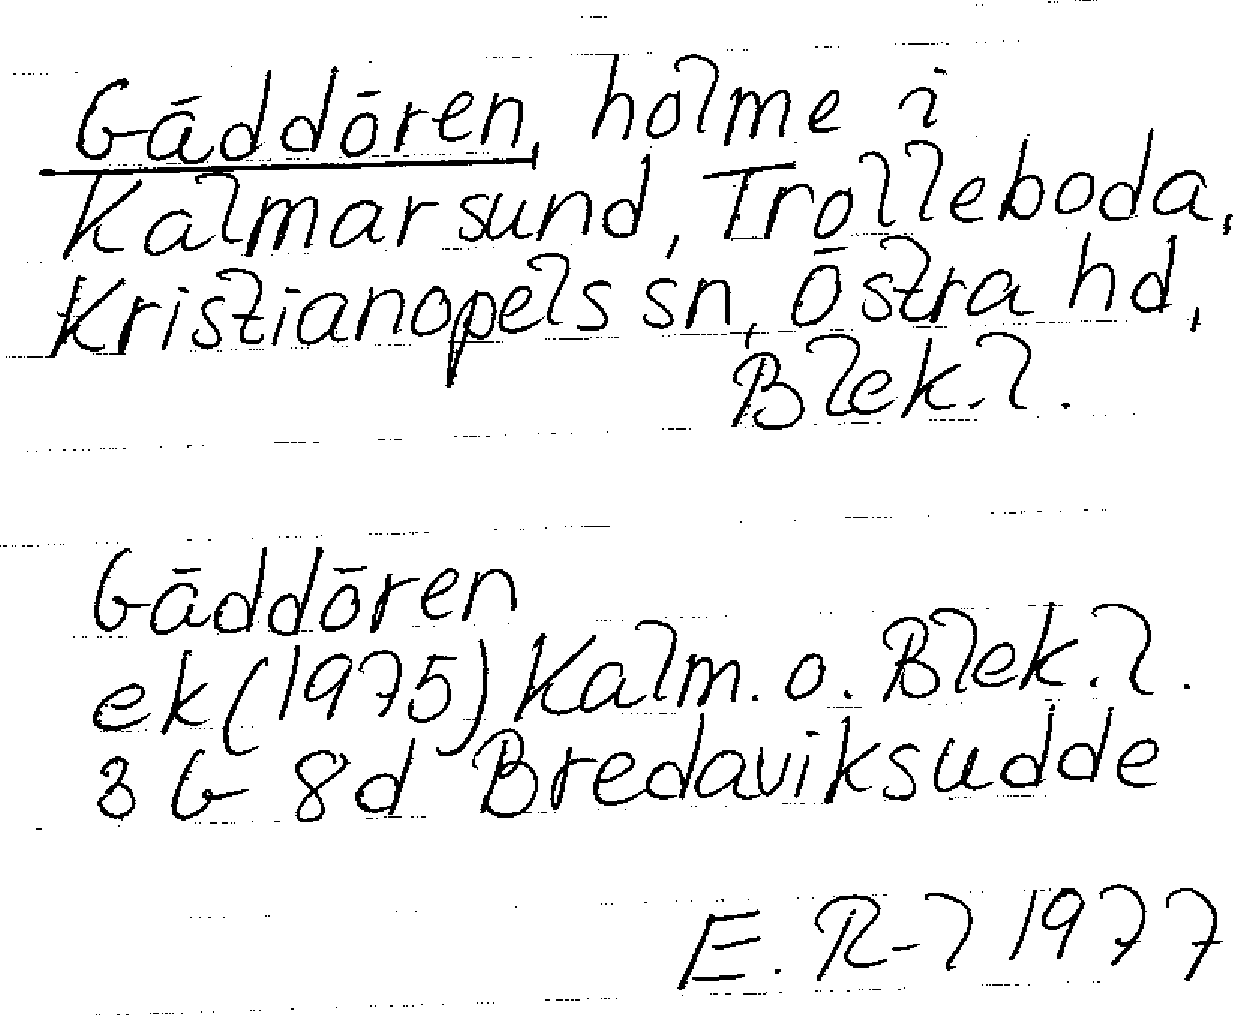 Gäddören, holme i
Kalmarsund, Trolleboda,
Kristianopels sn, Östra hd,
Blek.l.
Gäddören
ek (1975) Kalm. o. Blek.l.
3 G 8d Bredaviksudde
E. R-l 1977